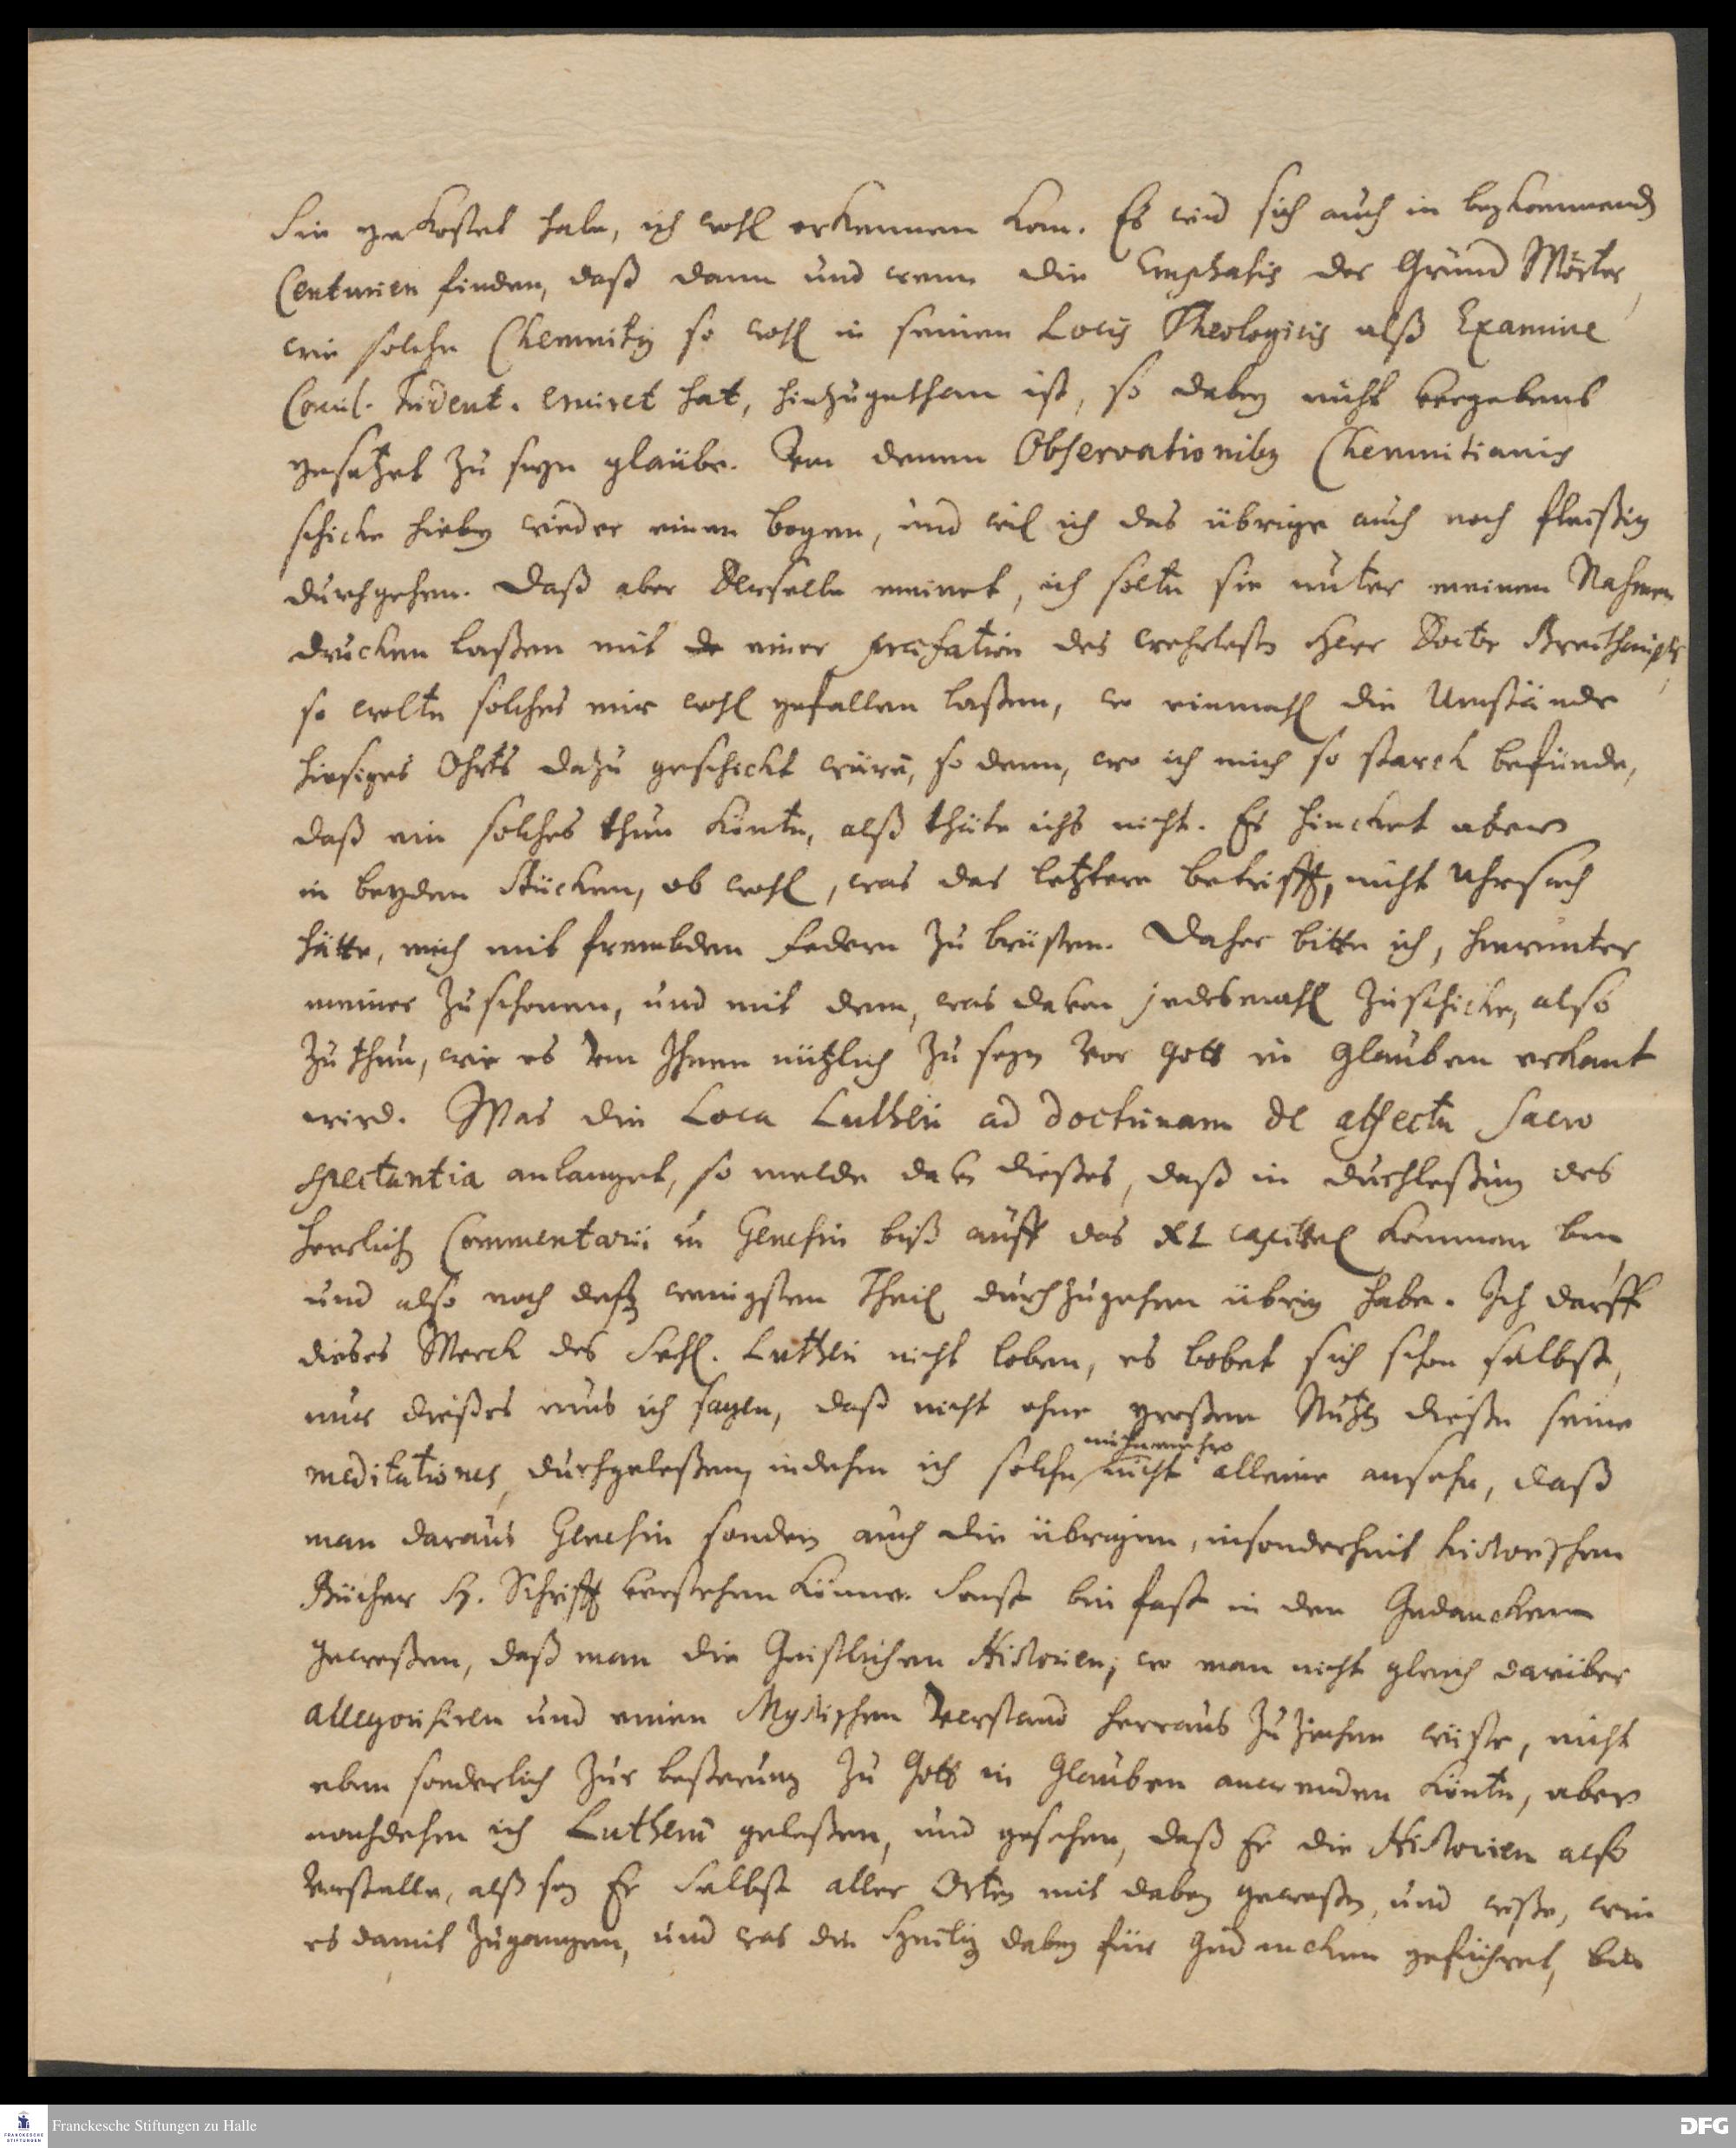 Sie gekostet habe, ich wohl erkennen kan. Es wird sich auch in beykommend
Centurien finden, daß dann und wenn die Emphasis der Grund Wörter,
wie solche Chemnitz so wohl in seinen Locis Theologicis alß Examine
Concil. Trident. eruiret hat, hinzugethan ist, so dabey nicht vergebens
gesetzet zu seyn glaübe. Von denen Observationib9 Chemnitianis
schicke hieby wieder einen bogen, und wil ich das übrige auch noch fleißig
durchgehen. Daß aber Derselbe meinet, ich solte sie unter meinem Nahmen
drucken laßen mit de einer præfation des wehrtesten Herr Doctor Breithaupts,
so wolte solches mir wohl gefallen laßen, wo einmahl die Umstände
hiesiges Ohrts dazu geschickt wären, so denn, wo ich mich so starck befünde,
daß ein solches thun könte, alß thäte ichs nicht. Es hincket aber
in beyden Stücken, ob wohl, was das letztere betrifft, nicht Uhrsach
hätte, mich mit frembden Federn zu brüsten. Daher bitte ich, hierunter
meiner zuschonen, und mit dem, was davon jedesmahl zuschicke, also
zu thun, wie es von Ihnen nützlich zu seyn vor Gott in Glauben erkant
wird. Was die Loca Lutheri ad doctrinam de affectu sacro
spectantia anlanget, so melde davon dießes, daß in durchleßung des
herrlich Commentarii in Genesin biß auff das XL capittel kommen bin
und also noch den wenigsten Theil durchzugehen übrig habe. Ich darff
dieses Werck des Sehl. Lutheri nicht loben, es lobet sich schon selbst,
nur dießes mus ich sagen, daß nicht ohne großen Nutzen dieße seine
meditationes, durchgeleßen, indehm ich solche nicht alleine ansehe, daß
nunmehro
man daraus Genesin sondern auch die übrigen, insonderheit historischen
Bücher H. Schrifft verstehen könne. Sonst bin fast in den Gedancken
geweßen, daß man die Geistlichen Historien, wo man nicht gleich darüber
allegorisiren und einen Mystischen Verstand herraus zuziehen wüste, nicht
eben sonderlich zur beßerung zu Gott in Glauben anwenden könte, aber
nachdehm ich Lutherum geleßen, und gesehen, daß Er die Historien also
vorstelle, alß sey Er selbst aller Orten mit dabey geweßen, und wiße, wie
es damit zugangen, und was die Heilig dabey für Gedancken geführet, bin